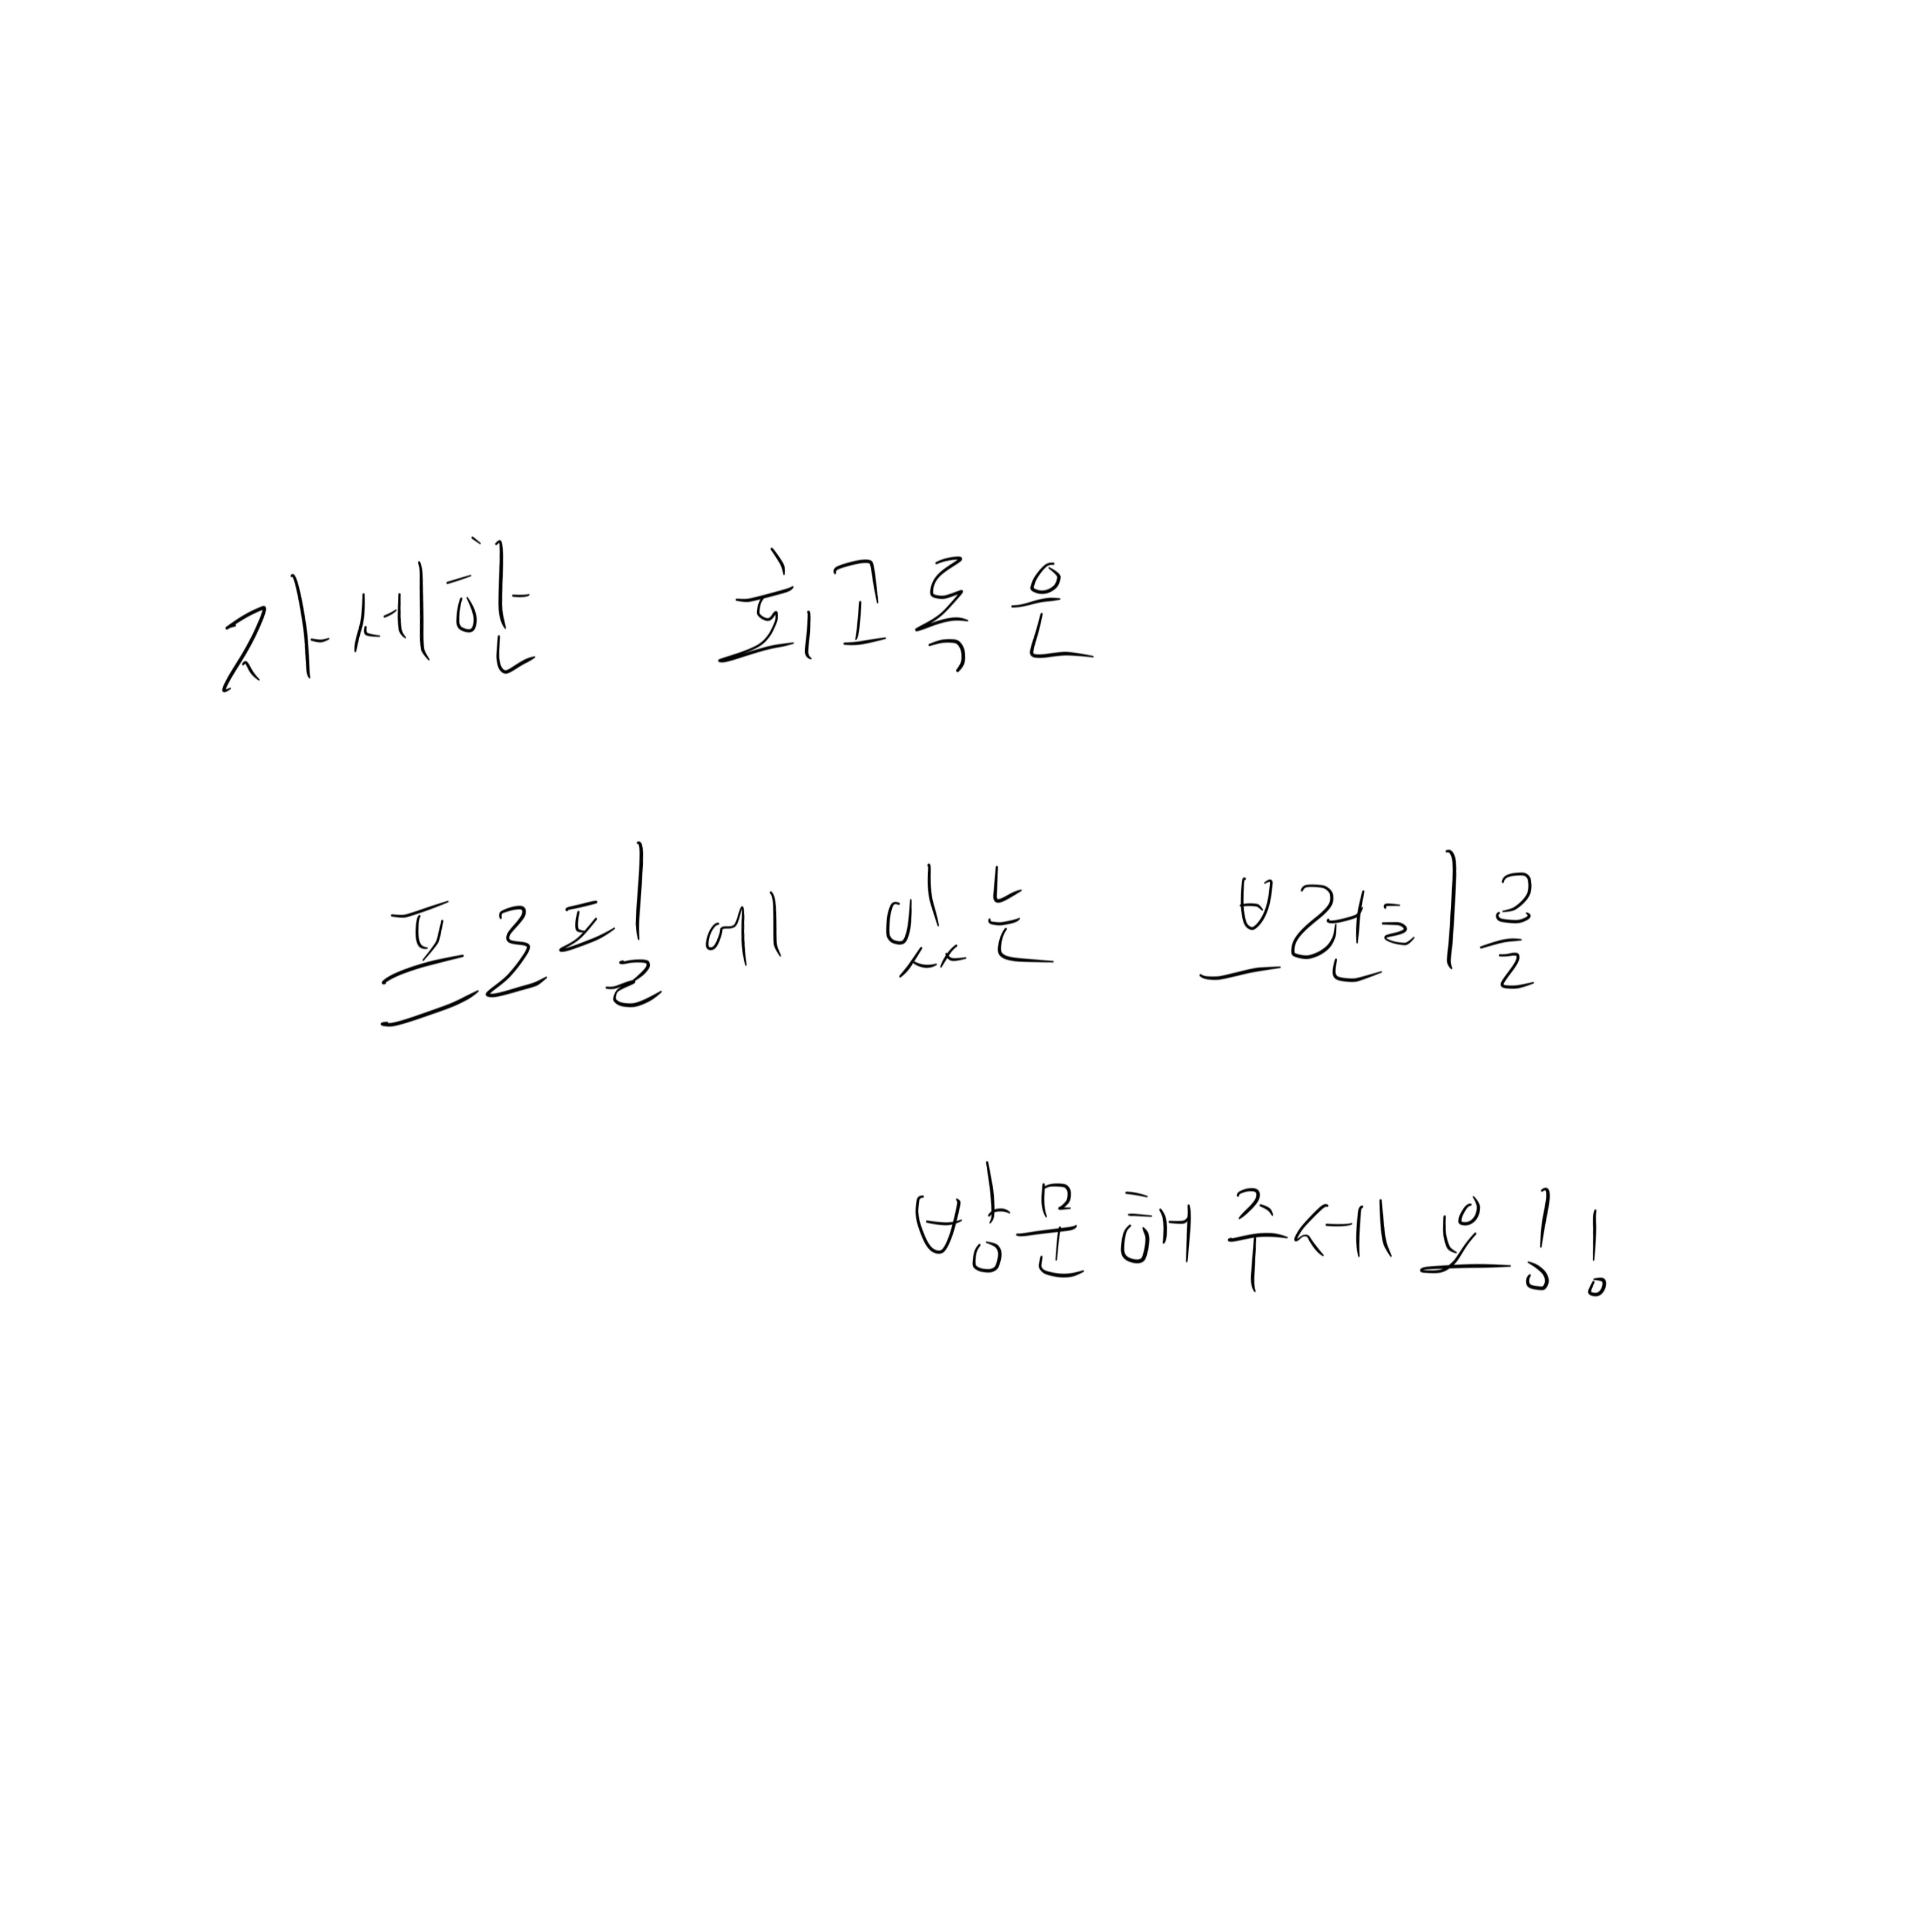 자세한 회고록은
프로필에 있는 브런치를
방문해주세요!!